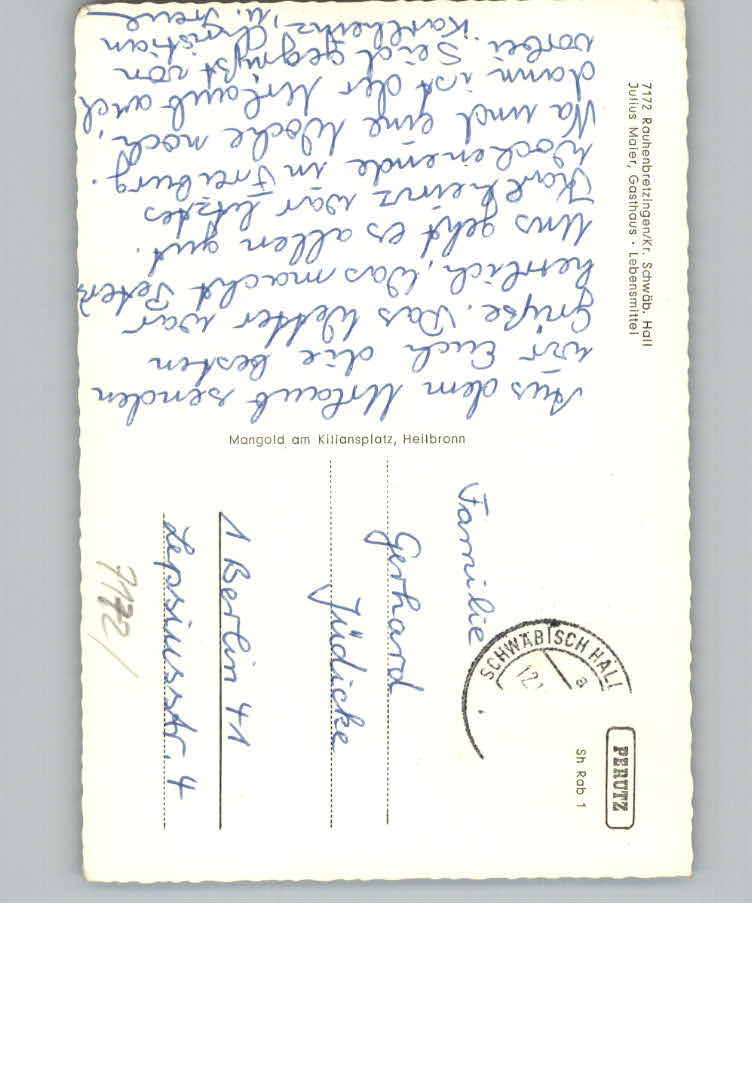 7172 Rauhenbretzingen/Kr. Schwäb. Hall
Julius Maier, Gasthaus · Lebensmittel
Aus dem Urlaub senden
wir Euch die besten
Grüße. Das Wetter war
herrlich, was macht Peter?
Uns geht es allen gut.
Karlheinz war letztes
Wochenende in Freiburg.
Na und eine Woche noch,
dann ist der Urlaub auch
vorbei. Seid gegrüßt von
Karlheinz, Christian
u. Irene
Mangold am Kiliansplatz, Heilbronn
PERUTZ
Sh Rab 1
SCHWÄBISCH HALL
a
12.
Familie
Gerhard
Jüdicke
1 Berlin 41
Lepsiusstr. 4
7172/